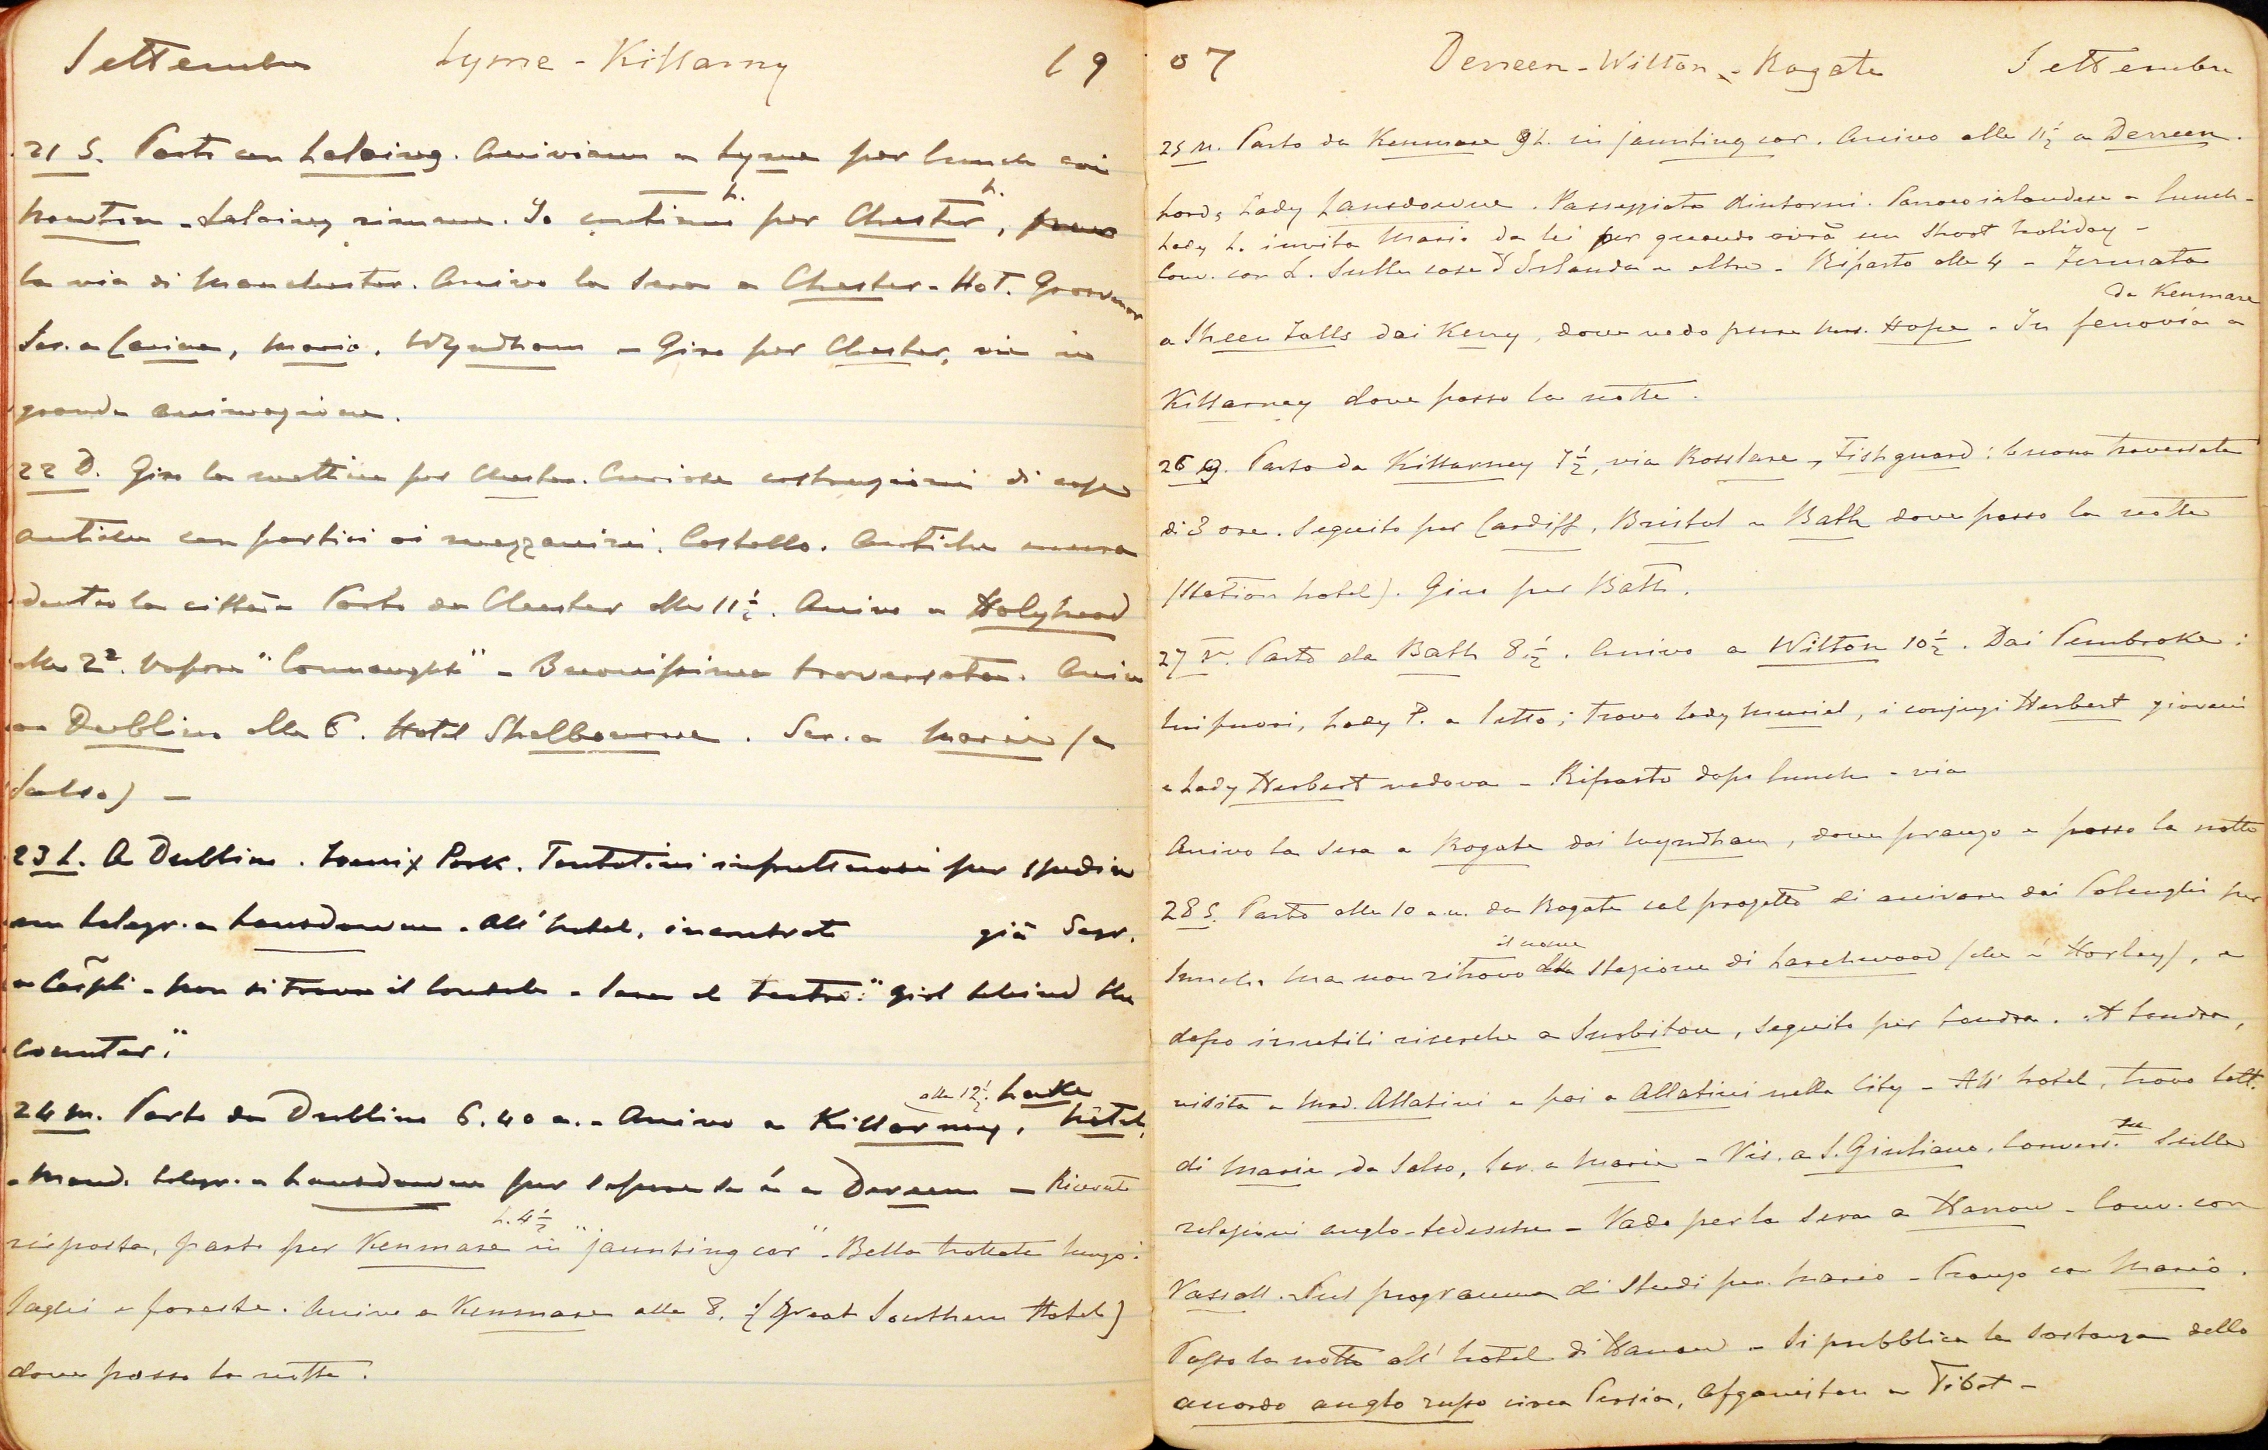 Settembre Lyme - Killarny 19
21 S. Parto con Laloing. Arriviamo a Lyme per lunch coi
Newton - Laloing rimane. Io continuo per Chester,
h. h.
la via di Manchester. Arrivo la sera a Chester - Hot. Grosvenor
Scr. a Carina, Mario, Wyndham - Giro per Chester, vie in
grande animazione.
22 D. Giro la mattina per Chester. Curiose costruzioni di case
antiche con portici ai mezzanini. Castello. Antiche mura
dentro la città - Parto da Chester alle 11½. Arrivo a Holyhead
alle 2². Vapore "Connaught" - Buonissima traversata. Arrivo
a Dublino alle 6. Hotel Shelbourne. Scr. a Marie (a
Salso) -
23 L. A Dublino. Foenix Park. Tentativi infruttuosi per spedire
un telegr. a Lansdowne. All' hotel, incontrato già Segr.
a Cospli - Non si trova il Console - Sera al teatro: "girl behind the
counter."
24 M. Parto da Dublino 6.40 a. - Arrivo a Killarney, alle 12½. Lake
hôtel,
- Mand. telegr. a Lansdowne per sapere se è a Derreen - Ricevuta
risposta, parto per Kenmare h. 4½ in "jaunting car" - Bella trottata lungo i
laghi e foreste. Arrivo a Kenmare alle 8. (Great Southern Hotel)
dove passo la notte.
07 Derreen - Wilton - Rogate Settembre
25 M. Parto da Kenmare 9 h. in jaunting car. Arrivo alle 11½ a Derreen.
Lord & Lady Lansdowne. Passeggiata dintorni. Parroco irlandese a lunch -
Lady L. invita Mario da lei per quando avrà un short holiday -
Conv. con L. sulle cose d'Irlanda e altro - Riparto alle 4 - Fermata
a Sheen Falls dai Kerry, dove vedo pure Mrs. Hope - In ferrovia da Kenmare a
Killarney dove passo la notte.
26 G. Parto da Killarney 7½, via Rosslare, Fishguard: buona traversata
di 3 ore. Seguito per Cardiff, Bristol e Bath dove passo la notte
(Station hotel). Giro per Bath.
27 V. Parto da Bath 8½. Arrivo a Wilton 10½. Dai Pembroke:
lui fuori, Lady P. a letto; trovo Lady Muriel, i conjugi Herbert giovani
e Lady Herbert vedova - Riparto dopo lunch - via
Arrivo la sera a Rogate dai Wyndham, dove pranzo e passo la notte
28 S. Parto alle 10 a.m. da Rogate col progetto di arrivare dai Polenghi per
lunch. Ma non ritrovo il nome della stazione di Larchwood (che è Horley), e
dopo inutili ricerche a Surbiton, seguito per Londra. A Londra,
visita a Mad. Allatini e poi a Allatini nella City - All' hotel, trovo lett.
di Marie da Salso, Scr. a Marie - Vis. a S. Giuliano. Convers. sulle
relazioni anglo-tedesche - Vado per la sera a Harrow - Conv. con
Vassall. Sul programma di studi per Mario - Pranzo con Mario.
Passo la notte all' hotel di Harrow - Si pubblica la sostanza dello
accordo anglo russo circa Persia, Afganistan e Tibet -